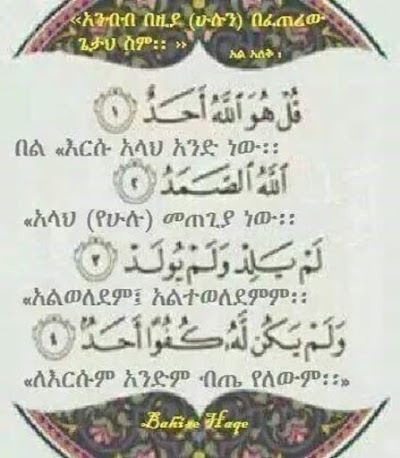 «አንብብ በዚያ (ሁሉን) በፈጠረው
ጌታህ ስም፡፡ »
አል አለቅ ፡
قُلْ هُوَ ٱللَّهُ أَحَدٌ ١
በል «እርሱ አላህ አንድ ነው፡፡
ٱللَّهُ ٱلصَّمَدُ ٢
«አላህ (የሁሉ) መጠጊያ ነው፡፡
لَمْ يَلِدْ وَلَمْ يُولَدْ ٣
«አልወለደም፤ አልተወለደምም፡፡
وَلَمْ يَكُن لَّهُۥ كُفُوًا أَحَدٌۢ ٤
«ለእርሱም አንድም ብጤ የለውም፡፡»
Bakise Haqe